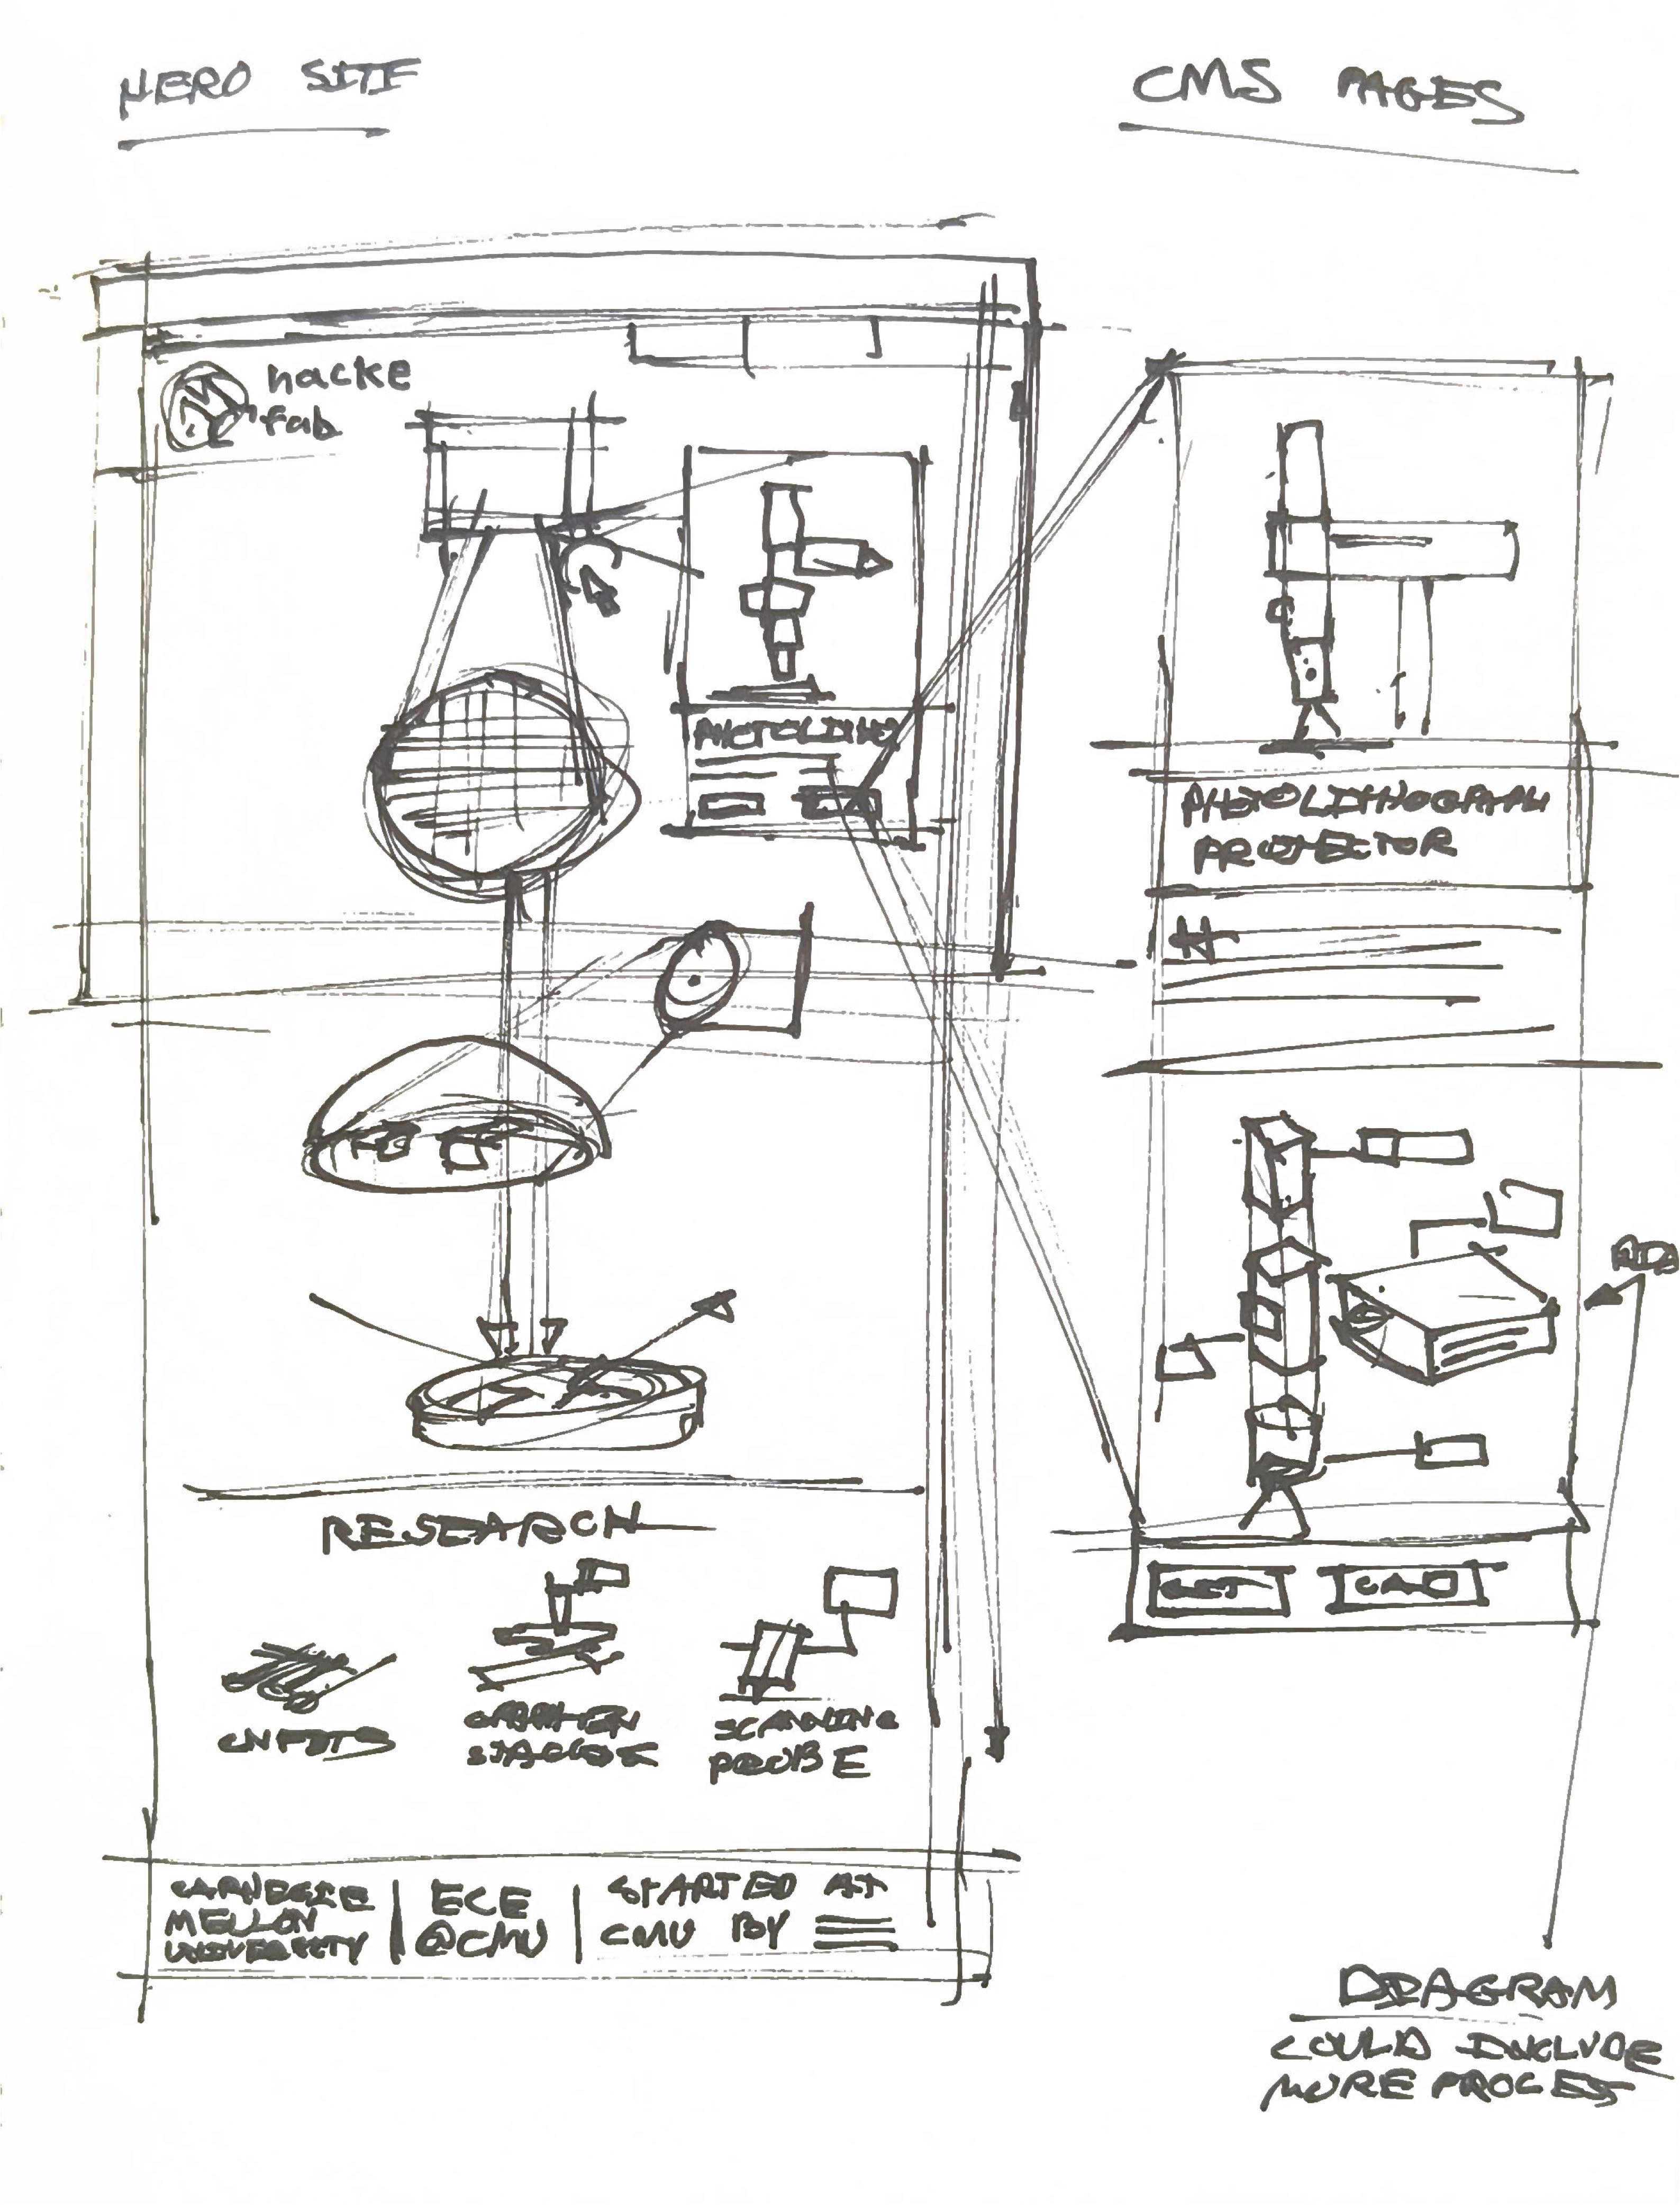 HERO SITE
CMS PAGES
hacke
fab
PHOTOLITHO
PHOTOLITHOGRAPHY
PROJECTOR
RESEARCH
CNFETS
SCANNING
PROBE
CARNEGIE
MELLON
UNIVERSITY
ECE
@CMU
STARTED AT
CMU BY
GET
CAD
DIAGRAM
COULD INCLUDE
MORE PROCESS